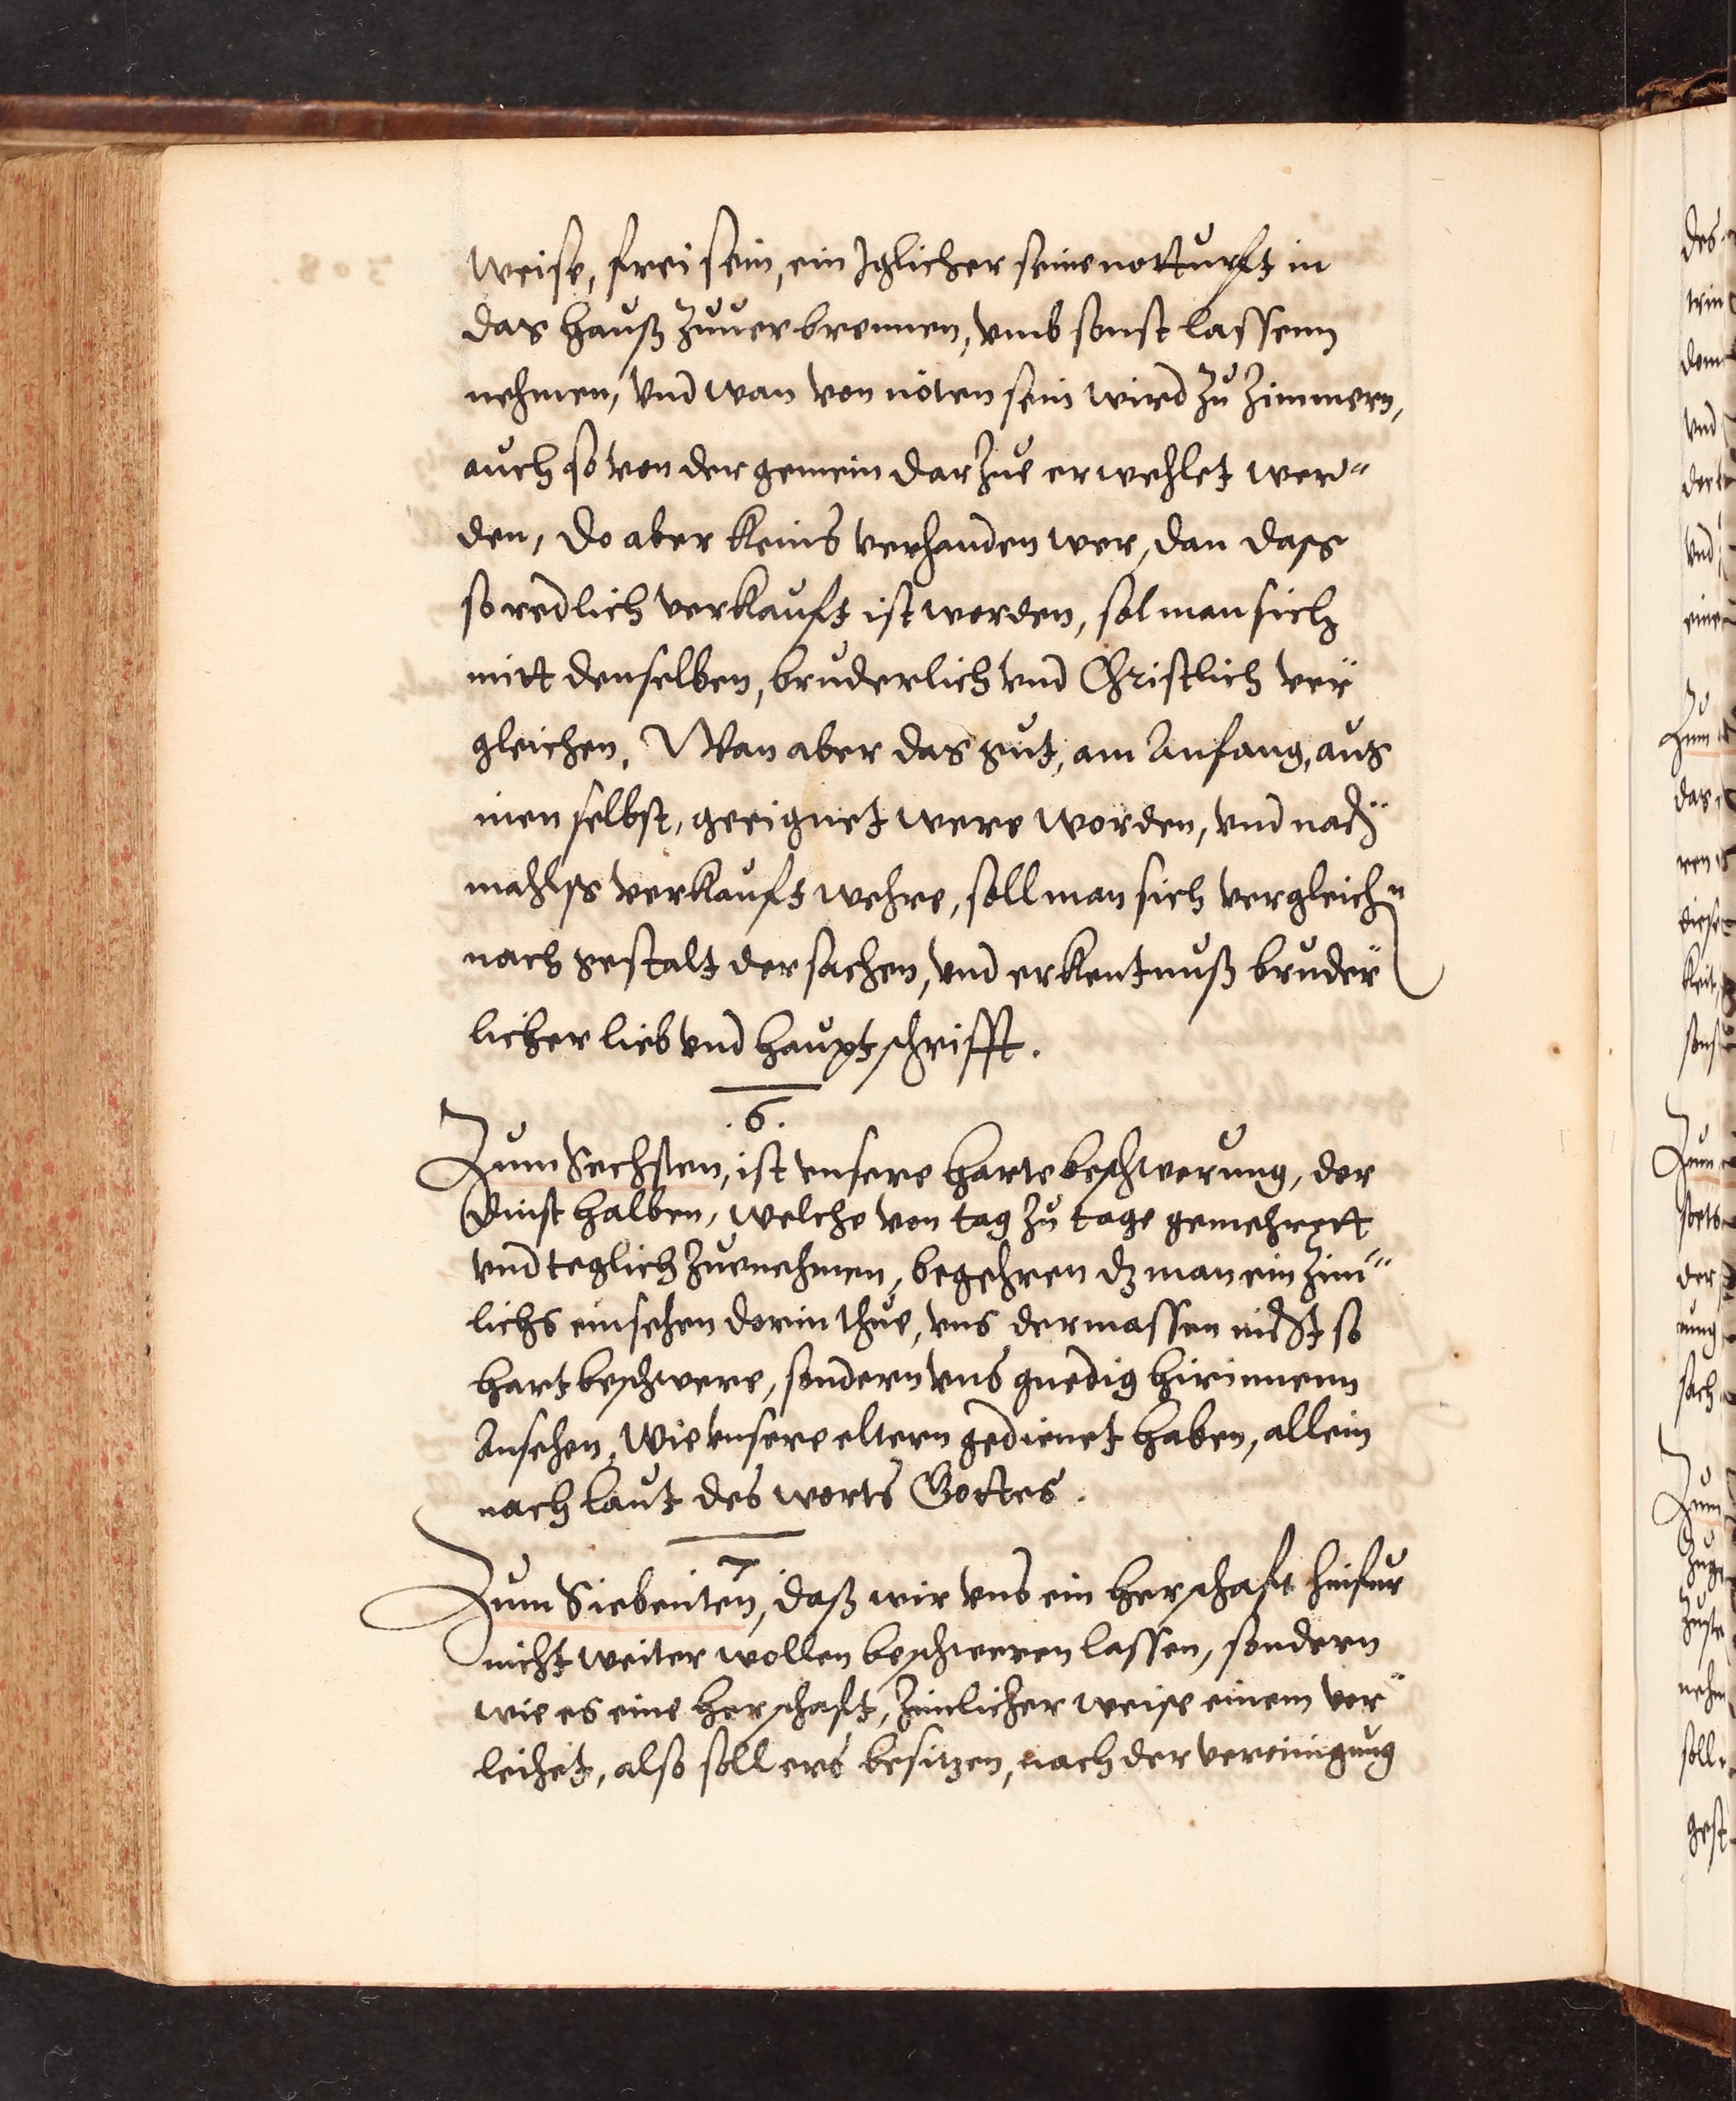 weise, frei sein, ein Jglicher seine notturft in
das hauß zuuerbrennen, vmb sonst lassenn
nehmen, vnd wan von nöten sein wird zu zimmern,
auch so von der gemein darzue erwehlet wer"
den, do aber keins verhanden wer, dan dass
so redlich verkauft ist worden, sol man sich
mitt denselben, bruderlich vnd Christlich ver"
gleichen. Wan aber das gut, am Anfang, aus
inen selbst, geeignet were worden, vnd nach"
mahlss verkauft wehre, soll man sich vergleichn
nach gestalt der sachen, vnd erkentnuß bruder"
licher lieb vnd haupt schrifft.
.6.
Zum Sechsten, ist vnsere harte beschwerung, der
dinst halben, welche von tag zu tage gemehrett
vnd teglich zuenehmen, begehren dz man ein zim"
lichs einsehen dorin thue, vns dermassen nicht so
hart beschwere, sondern vns gnedig hirinnenn
Ansehen, Wie vnsere eltern gedienet haben, allein
nach laut des worts Gottes.
7
Zum Siebenten, daß wir vns ein herschaft hinfur
nicht weiter wollen beschweren lassen, sondern
wie es eine herschaft, zimlicher weise einem ver"
leihet, also soll ers besitzen, nach der vereinigung